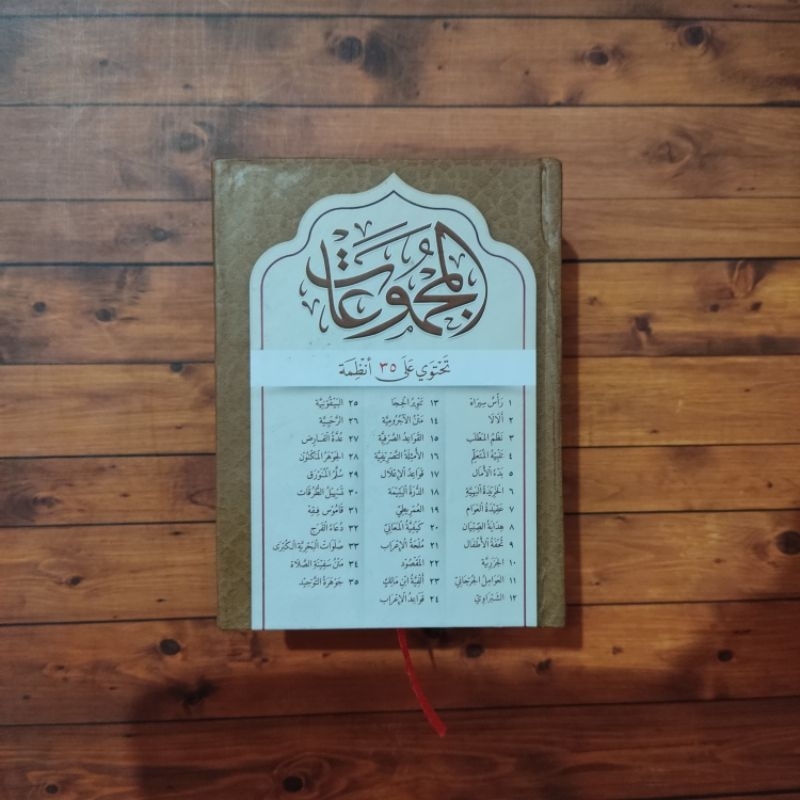 المجموعات
تَحْتَوِي عَلَى ٣٥ أَنْظِمَة
١ رَأْسُ سِيرَاهْ
٢ أَلَالَا
٣ نَظْمُ المَطْلَب
٤ تَنْبِيْهُ المُتَعَلِّم
٥ بَدْءُ الأَمَال
٦ الخَرِيْدَةُ البَهِيَّة
٧ عَقِيْدَةُ العَوَام
٨ هِدَايَةُ الصِّبْيَان
٩ تُحْفَةُ الأَطْفَال
١٠ الجَزَرِيَّة
١١ العَوَامِلُ الجُرْجَانِي
١٢ الشَّبْرَاوِيْ
١٣ تَنْوِيْرُ الحِجَا
١٤ مَتْنُ الآجُرُوْمِيَّة
١٥ القَوَاعِدُ الصَّرْفِيَّة
١٦ الأَمْثِلَةُ التَّصْرِيْفِيَّة
١٧ قَوَاعِدُ الإِعْلَال
١٨ الدُّرَّةُ اليَتِيْمَة
١٩ العِمْرِيْطِيْ
٢٠ كَيْفِيَّةُ المَعَانِيْ
٢١ مُلْحَةُ الإِعْرَاب
٢٢ المَقْصُوْد
٢٣ أَلْفِيَّةُ ابْنِ مَالِك
٢٤ قَوَاعِدُ الإِعْرَاب
٢٥ البَيْقُوْنِيَّة
٢٦ الرَّحَبِيَّة
٢٧ عُدَّةُ الفَارِض
٢٨ الجَوْهَرُ المَكْنُوْن
٢٩ سُلَّمُ المُنَوْرَق
٣٠ تَسْهِيْلُ الطُّرُقَات
٣١ قَامُوْس فِقْه
٣٢ دُعَاءُ الفَرَج
٣٣ صَلَوَاتُ البَحْرِيَّةِ الكُبْرَى
٣٤ مَتْنُ سَفِيْنَةِ الصَّلَاة
٣٥ جَوْهَرَةُ التَّوْحِيْد